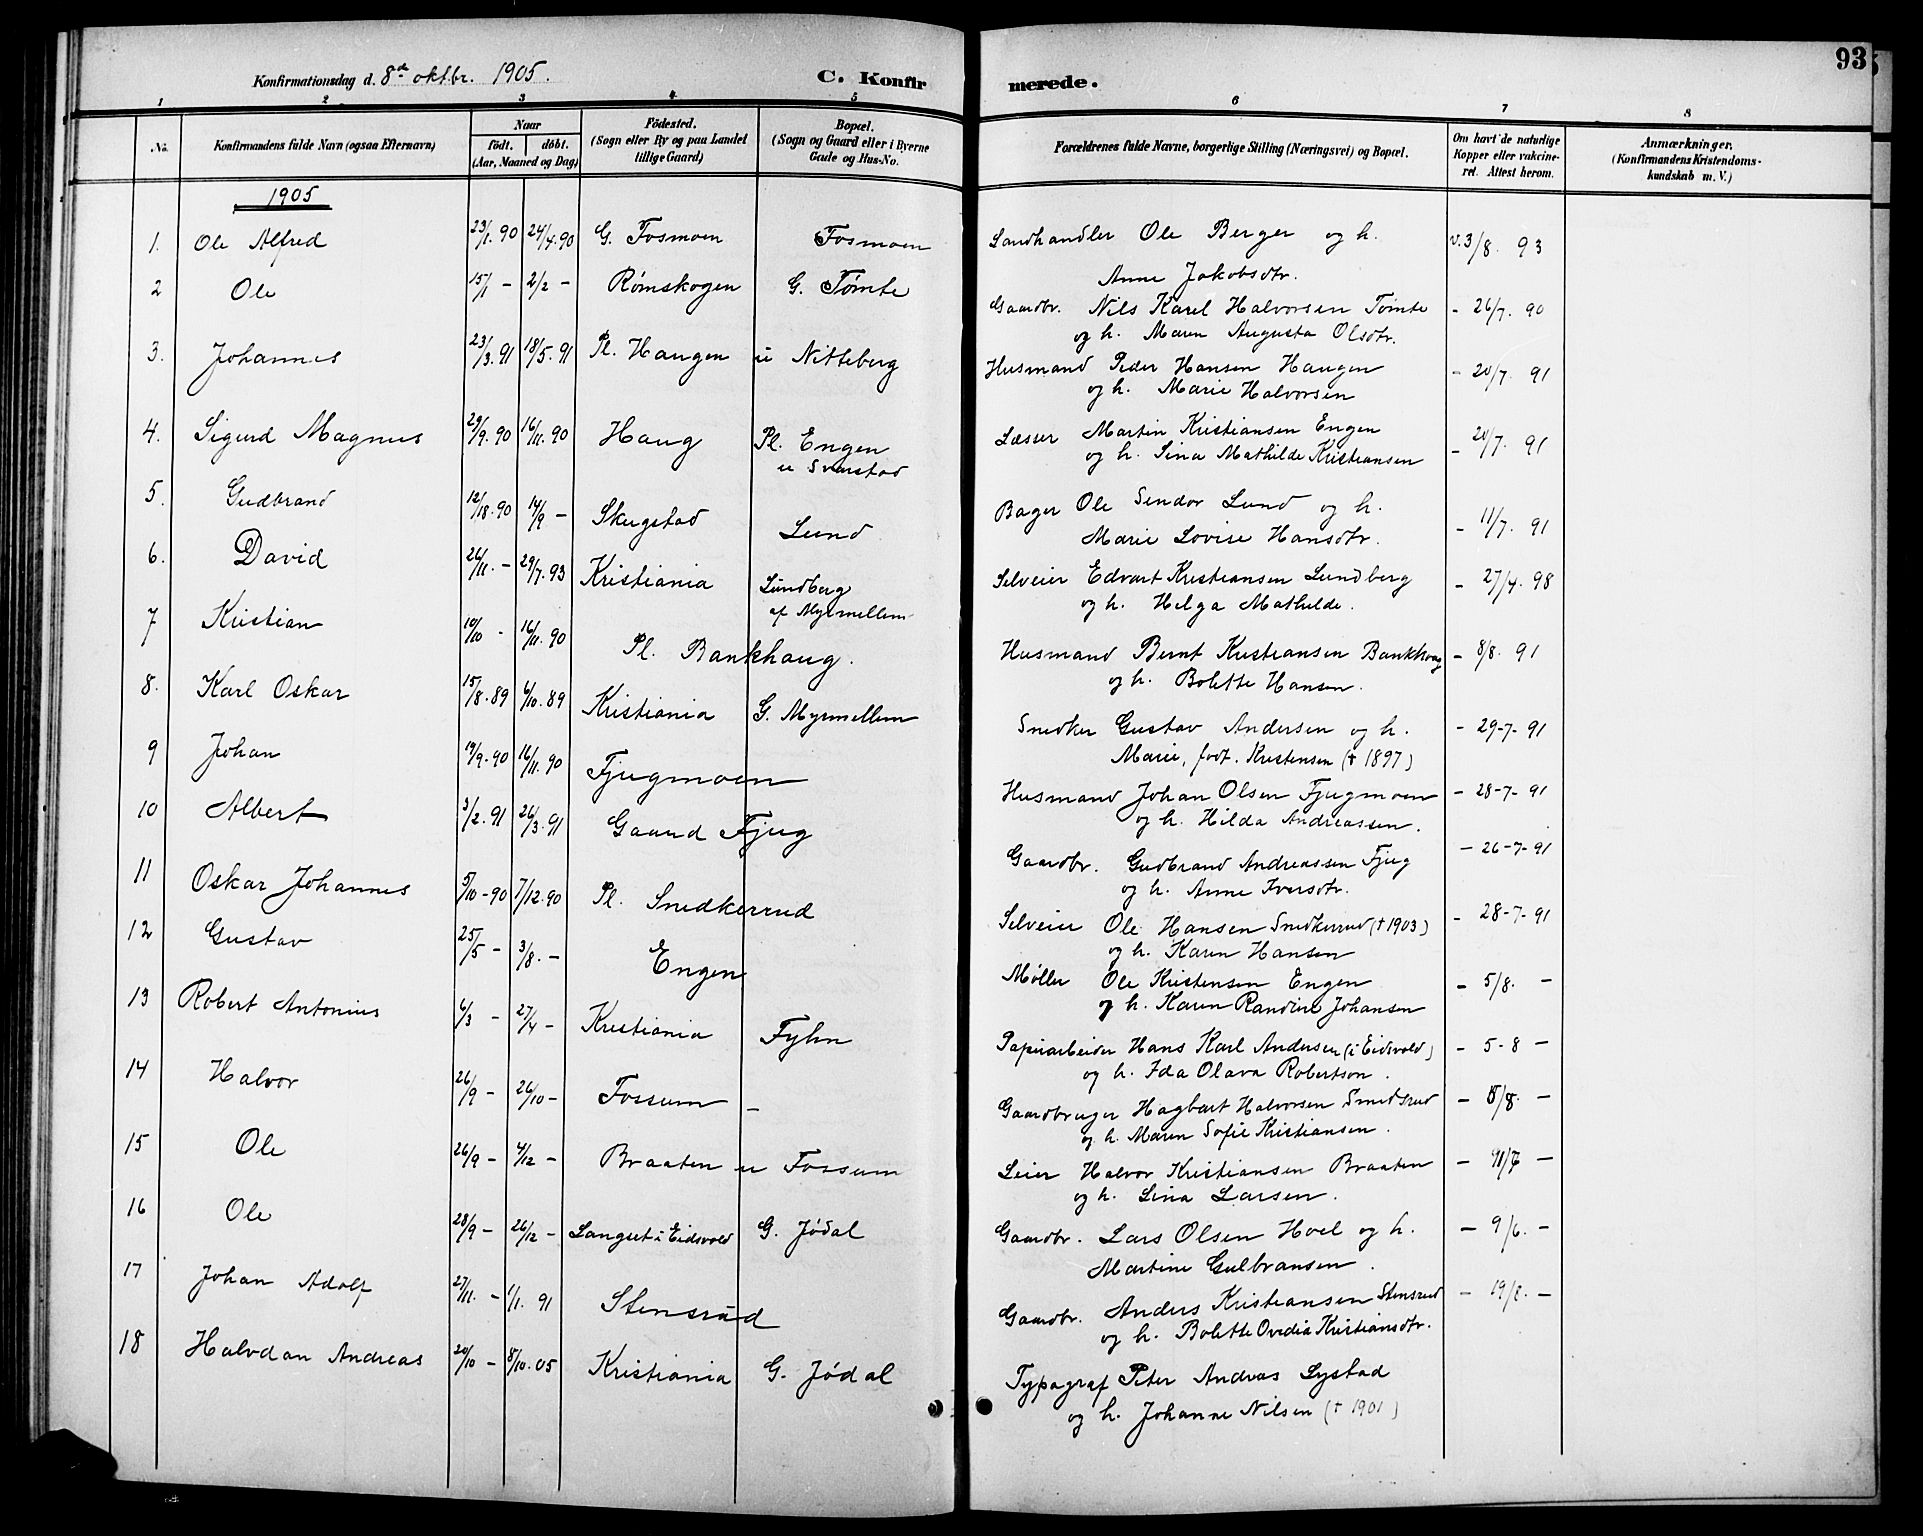 93
Konfirmationsdag d. 8de oktbr. 1905. C. Konfirmerede.
1 2 3 4 5 6 7 8
No. Konfirmandens fulde Navn (ogsaa Efternavn)
Naar
födt. döbt.
(Aar, Maaned og Dag)
Födested.
(Sogn eller By og paa Landet
tillige Gaard)
Bopæl.
(Sogn og Gaard eller i Byerne
Gade og Hus-No.
Forældrenes fulde Navne, borgerlige Stilling (Næringsvei) og Bopæl.
Om havt de naturlige
Kopper eller vakcine-
ret. Attest herom.
Anmærkninger.
(Konfirmandens Kristendoms-
kundskab m. V.)
1905
1. Ole Alfred 23/1. 90 24/4. 90 G. Fosmoen Fosmoen Landhandler Ole Berger og h. v. 3/8. 93
Anne Jakobsdtr.
2 Ole 15/1 - 2/2 - Rømskogen G. Tømte Gaardbr. Nils Karel Halvorsen Tømte - 26/7. 90
og h. Maren Augusta Olsdtr.
3. Johannes 23/3. 91 18/5. 91 Pl. Haugen u Nitteberg Husmand Peder Hansen Haugen - 20/7. 91
og h. Marie Halvorsen
4. Sigurd Magnus 29/9. 90 16/11. 90 Haug Pl. Engen Læsser Martin Kristiansen Engen - 20/7. 91
u Svarstad og h. Lina Mathilde Kristiansen
5. Gudbrand 12/18. 90 14/9 - Skugstad Lund Bager Ole Sendor Lund og h. - 11/7. 91
Marie Lovise Hansdtr.
6. David 26/11. - 29/7. 93 Kristiania Lundberg Selveier Edvart Kristiansen Lundberg - 27/4. 98
af Myrmellem og h. Helga Mathilde.
7 Kristian 10/10 - 16/11. 90 Pl. Bankhaug. Husmand Bernt Kristiansen Bankhaug - 8/8. 91
og h. Bolette Hansen.
8. Karl Oskar 15/8. 89 6/10. 89 Kristiania G. Myrmellem Snedker Gustav Andersen og h. - 29-7-91
Marie, født. Kristensen († 1897)
9 Johan 19/9. 90 16/11. 90 Fjugmoen Husmand Johan Olsen Fjugmoen - 28-7-91
og h. Hilda Andreassen.
10 Albert 3/2. 91 26/3. 91 Gaard Fjug Gaardbr. Gudbrand Andreassen Fjug - 26-7-91
og h. Anne Iversdtr.
11 Oskar Johannes 5/10-90 7/12. 90 Pl. Snedkerrud Selveier Ole Hansen Snedkerrud († 1903) - 28-7-91
og h. Karen Hansen
12 Gustav 25/5 - 3/8. - Engen Møller Ole Kristensen Engen - 5/8. -
og h. Karen Randine Johansen
13 Robert Antonius 6/3 - 27/4 - Kristiania Fyhn Papirarbeider Hans Karl Andersen (i Eidsvold) - 5-8 -
og h. Ida Olava Robertson.
14 Halvor 26/9 - 26/10 - Fossum - Gaardbruger Hagbart Halvorsen Smedsrud - /8. -
og h. Maren Sofie Kristiansen.
15 Ole 26/9 - 4/12 - Braaten u Fossum Leier Halvor Kristiansen Braaten - 11/ -
og h. Lina Larsen.
16 Ole 28/9 - 26/12 - Langset i Eidsvold G. Jødal Gaardbr. Lars Olsen Hoel og h. - 9/6. -
Martine Gulbransen.
17 Johan Adolf 27/11. - 1/1. 91 Stensrud Gaardbr. Anders Kristiansen Stensrud - 19/8. -
og h. Bolette Ovedia Kristiansdtr.
18 Halvdan Andreas 20/10 - 8/10. 05 Kristiania G. Jødal Typograf Peter Andreas Lystad
og h. Johanne Nilsen († 1901)